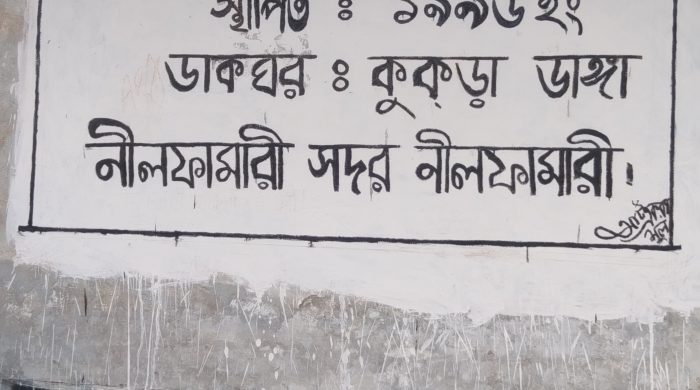 স্থাপিত : ১৯৯৬ ইং
ডাকঘর : কুক্‌ড়া ডাঙ্গা
নীলফামারী সদর নীলফামারী।